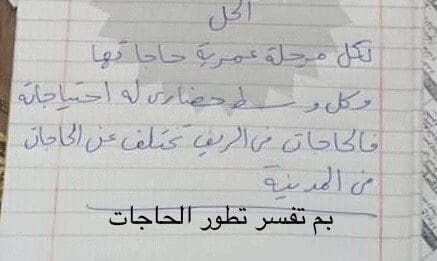 الحل
لكل مرحلة عمرية حاجاتها
وكل وسط حضاري له احتياجاته
فالحاجات في الريف تختلف عن الحاجات
في المدينة
بم تفسر تطور الحاجات